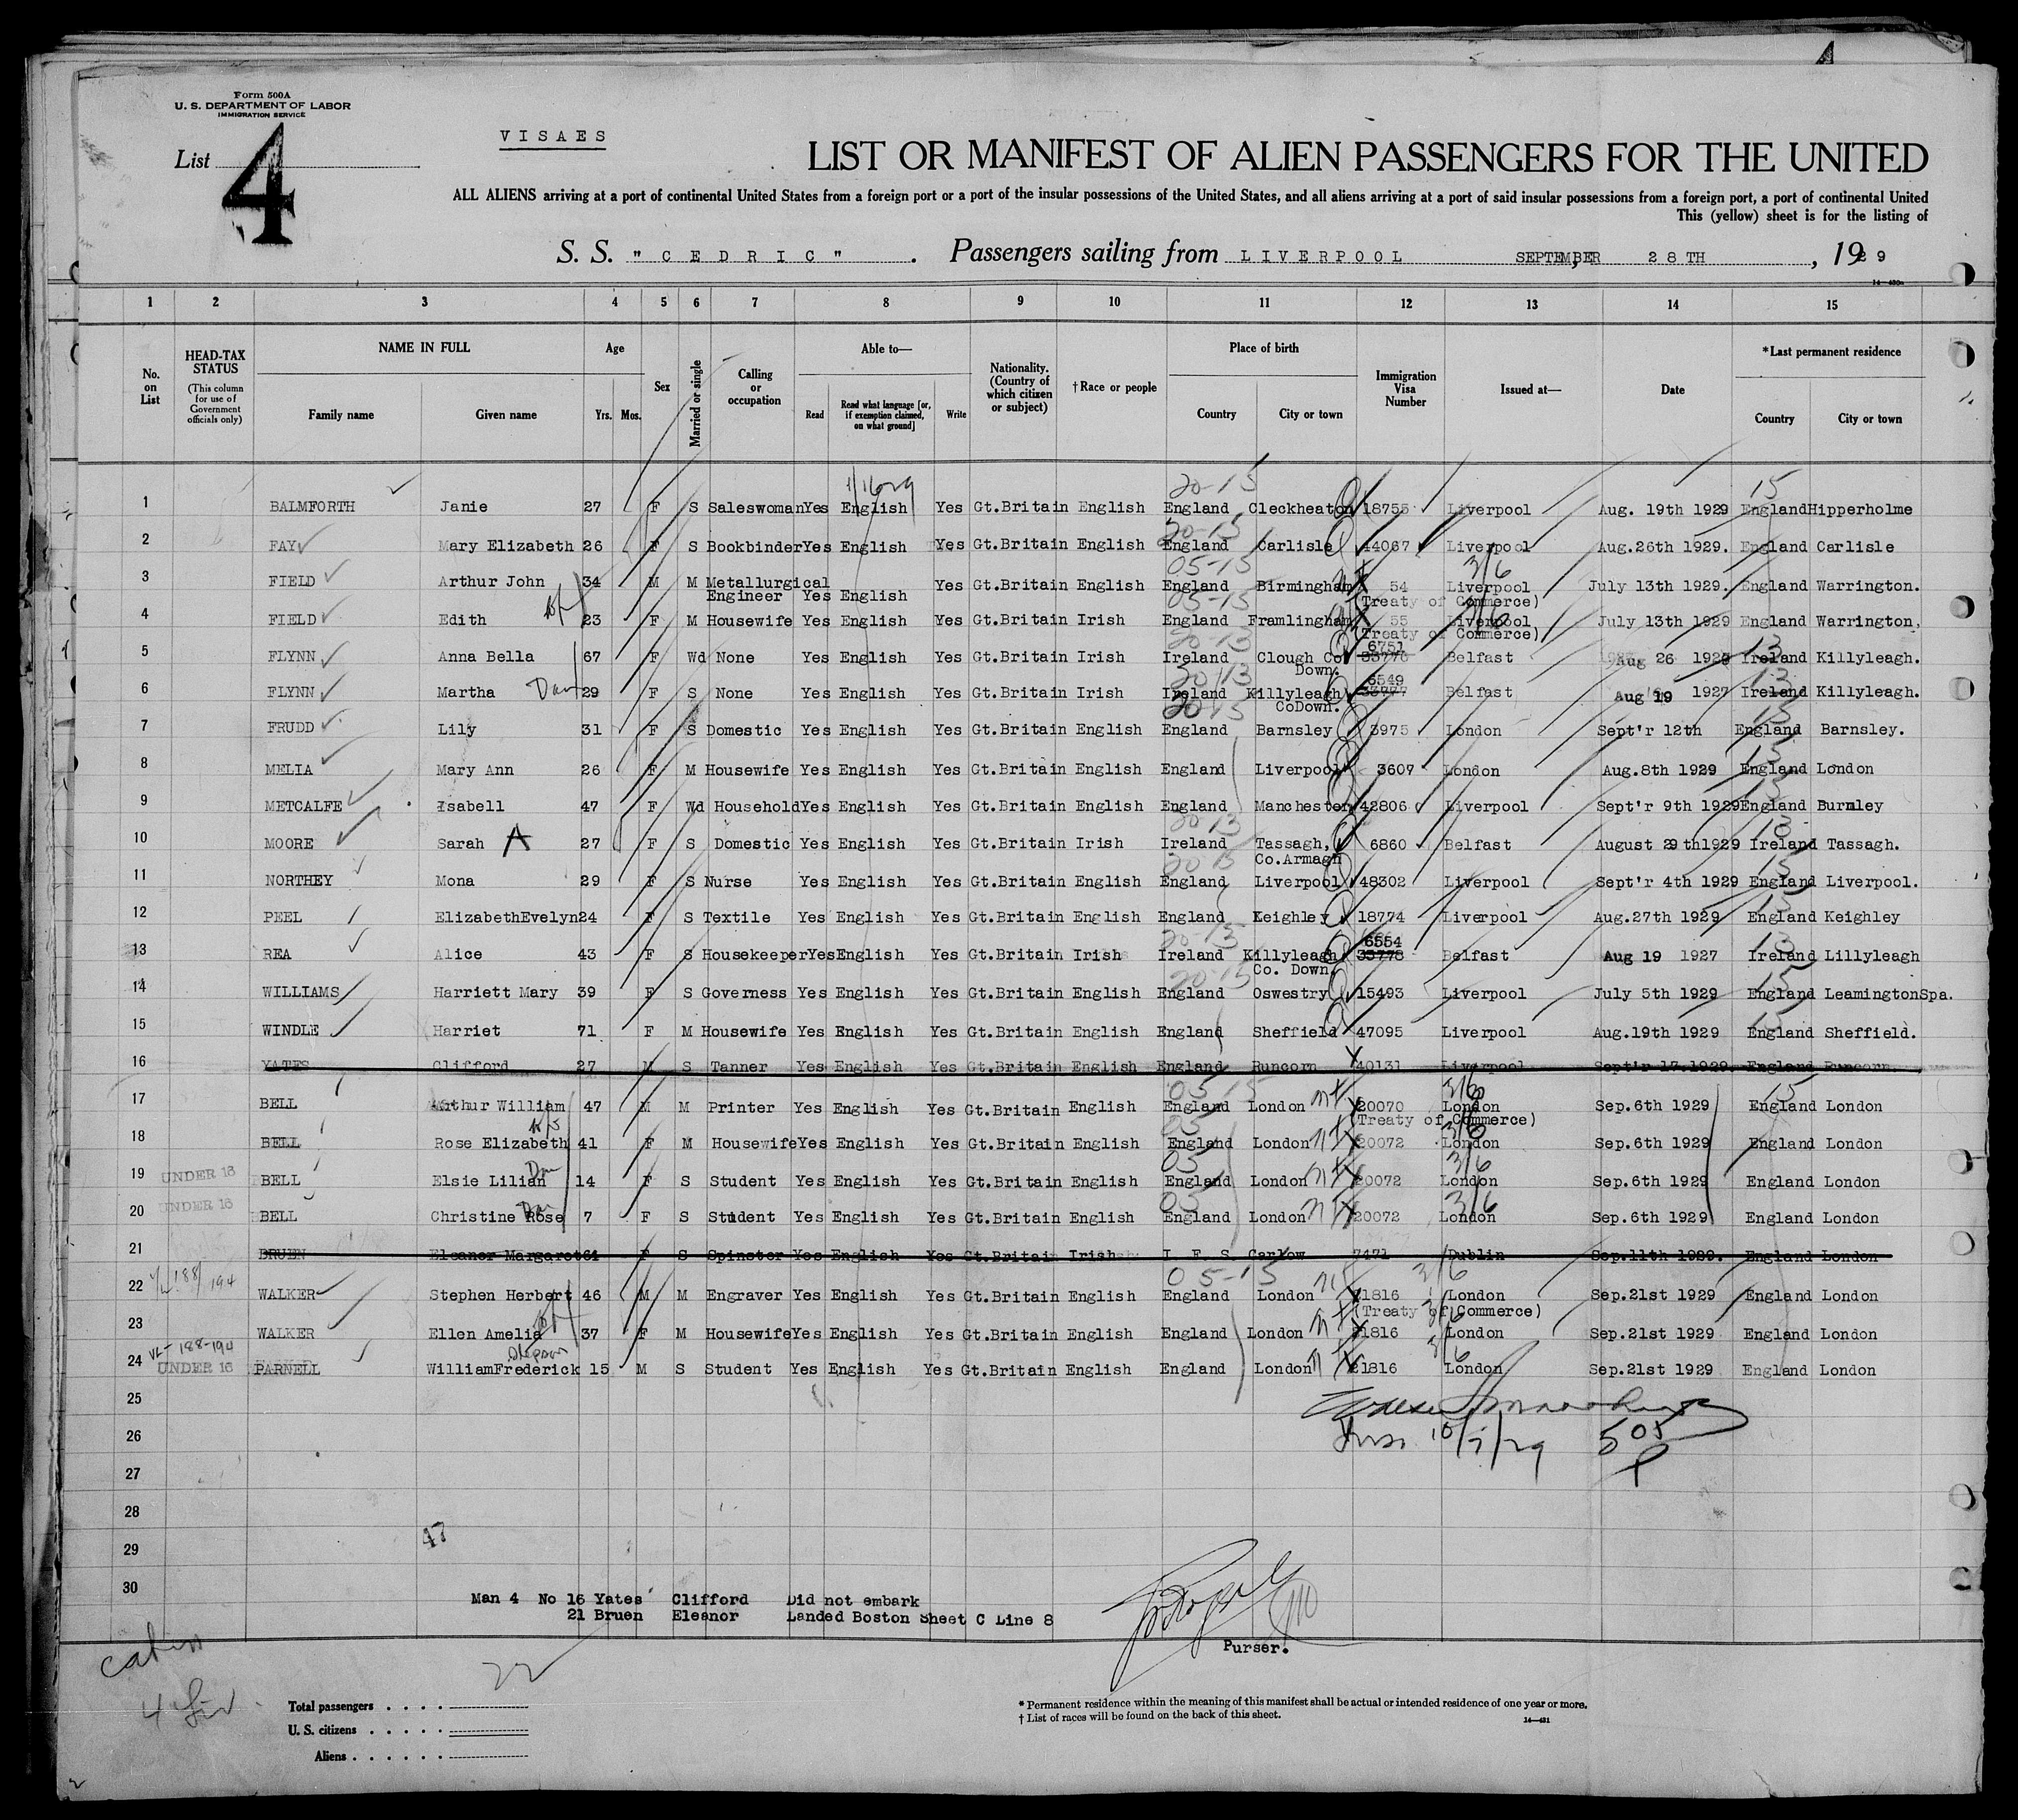 Form 500A
U. S. DEPARTMENT OF LABOR
IMMIGRATION SERVICE
List 4
VISAES
LIST OR MANIFEST OF ALIEN PASSENGERS FOR THE UNITED
ALL ALIENS arriving at a port of continental United States from a foreign port or a port of the insular possessions of the United States, and all aliens arriving at a port of said insular possessions from a foreign port, a port of continental United
This (yellow) sheet is for the listing of
S. S. "CEDRIC". Passengers sailing from LIVERPOOL SEPTEMBER 28TH, 1929
1 2 3 4 5 6 7 8 9 10 11 12 13 14 15
No. on List
HEAD-TAX STATUS (This column for use of Government officials only)
NAME IN FULL
Family name Given name
Age Yrs. Mos.
Sex
Married or single
Calling or occupation
Able to—
Read Read what language [or, if exemption claimed, on what ground] Write
Nationality. (Country of which citizen or subject)
†Race or people
Place of birth
Country City or town
Immigration Visa Number
Issued at—
Date
*Last permanent residence
Country City or town
1 BALMFORTH Janie 27 F S Saleswoman Yes English Yes Gt.Britain English England Cleckheaton 18755 Liverpool Aug. 19th 1929 England Hipperholme
2 FAY Mary Elizabeth 26 F S Bookbinder Yes English Yes Gt.Britain English England Carlisle 44067 Liverpool Aug.26th 1929. England Carlisle
3 FIELD Arthur John 34 M M Metallurgical Engineer Yes English Yes Gt.Britain English England Birmingham 54 Liverpool July 13th 1929. England Warrington.
(Treaty of Commerce)
4 FIELD Edith 23 F M Housewife Yes English Yes Gt.Britain Irish England Framlingham 55 Liverpool July 13th 1929 England Warrington.
(Treaty of Commerce)
5 FLYNN Anna Bella 67 F Wd None Yes English Yes Gt.Britain Irish Ireland Clough Co Down. 6751 33776 Belfast Aug 26 192 Ireland Killyleagh.
6 FLYNN Martha Dau 29 F S None Yes English Yes Gt.Britain Irish Ireland Killyleagh CoDown. 6549 33777 Belfast Aug 19 1927 Ireland Killyleagh.
7 FRUDD Lily 31 F S Domestic Yes English Yes Gt.Britain English England Barnsley 3975 London Sept'r 12th England Barnsley.
8 MELIA Mary Ann 26 F M Housewife Yes English Yes Gt.Britain English England Liverpool 3607 London Aug.8th 1929 England London
9 METCALFE Isabell 47 F Wd Household Yes English Yes Gt.Britain English England Manchester 42806 Liverpool Sept'r 9th 1929 England Burnley
10 MOORE Sarah A 27 F S Domestic Yes English Yes Gt.Britain Irish Ireland Tassagh, Co.Armagh 6860 Belfast August 29th1929 Ireland Tassagh.
11 NORTHEY Mona 29 F S Nurse Yes English Yes Gt.Britain English England Liverpool 48302 Liverpool Sept'r 4th 1929 England Liverpool.
12 PEEL ElizabethEvelyn 24 F S Textile Yes English Yes Gt.Britain English England Keighley 18774 Liverpool Aug.27th 1929 England Keighley
13 REA Alice 43 F S Housekeeper Yes English Yes Gt.Britain Irish Ireland Killyleagh Co. Down 6554 33778 Belfast Aug 19 1927 Ireland Lillyleagh
14 WILLIAMS Harriett Mary 39 F S Governess Yes English Yes Gt.Britain English England Oswestry 15493 Liverpool July 5th 1929 England LeamingtonSpa.
15 WINDLE Harriet 71 F M Housewife Yes English Yes Gt.Britain English England Sheffield 47095 Liverpool Aug.19th 1929 England Sheffield.
16 YATES Clifford 27 M S Tanner Yes English Yes Gt.Britain English England Runcorn 40131 Liverpool Sept'r 17.1929 England Runcorn.
17 BELL Arthur William 47 M M Printer Yes English Yes Gt.Britain English England London 20070 London Sep.6th 1929 England London
(Treaty of Commerce)
18 BELL Rose Elizabeth 41 F M Housewife Yes English Yes Gt.Britain English England London 20072 London Sep.6th 1929 England London
19 UNDER 16 BELL Elsie Lilian Dau 14 F S Student Yes English Yes Gt.Britain English England London 20072 London Sep.6th 1929 England London
20 UNDER 16 BELL Christine Rose Dau 7 F S Student Yes English Yes Gt.Britain English England London 20072 London Sep.6th 1929 England London
21 BRUEN Eleanor Margaret 61 F S Spinster Yes English Yes Gt.Britain Irish I. F. S. Carlow 7471 Dublin Sep.11th 1929. England London
22 WALKER Stephen Herbert 46 M M Engraver Yes English Yes Gt.Britain English England London 21816 London Sep.21st 1929 England London
(Treaty of Commerce)
23 WALKER Ellen Amelia 37 F M Housewife Yes English Yes Gt.Britain English England London 21816 London Sep.21st 1929 England London
24 UNDER 16 PARNELL WilliamFrederick Stepson 15 M S Student Yes English Yes Gt.Britain English England London 21816 London Sep.21st 1929 England London
25
26 10/7/29 505
27
28
29
30
Man 4 No 16 Yates Clifford Did not embark
21 Bruen Eleanor Landed Boston Sheet C Line 8
Purser.
Cabin
22
Total passengers
U. S. citizens
Aliens
* Permanent residence within the meaning of this manifest shall be actual or intended residence of one year or more.
† List of races will be found on the back of this sheet.
14—431